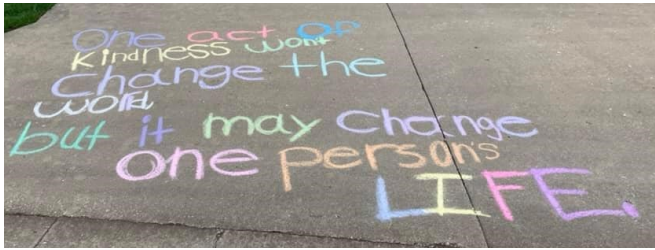 One act of
Kindness wont
change the
world,
but it may change
one person's
LIFE.